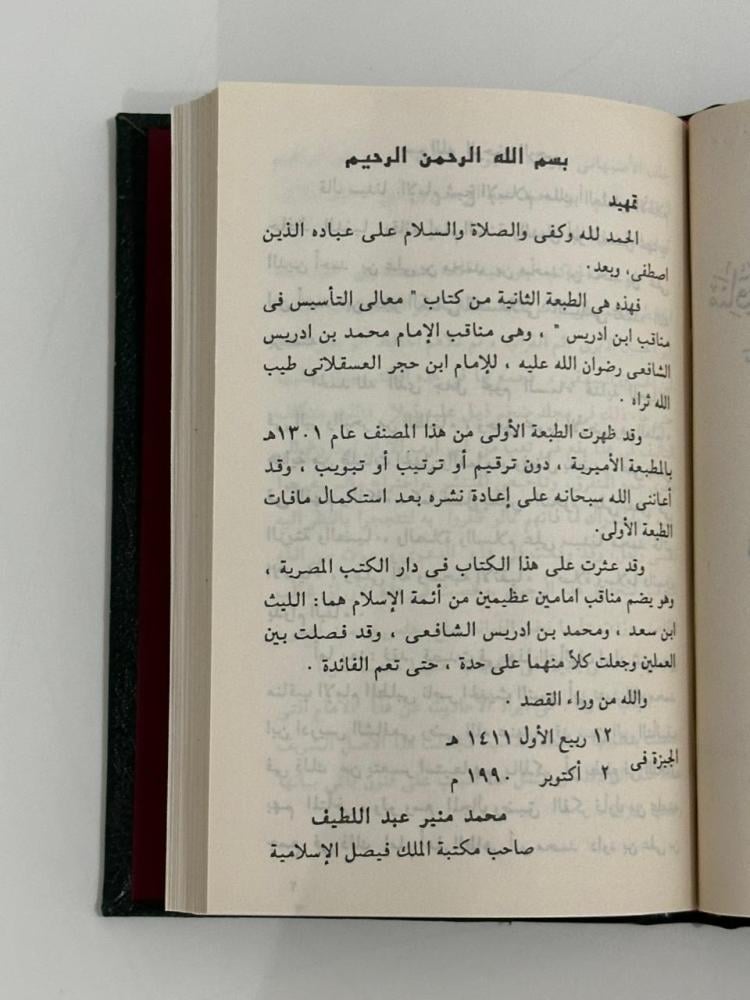 بسم الله الرحمن الرحيم
تمهيد
الحمد لله وكفى والصلاة والسلام على عباده الذين
اصطفى، وبعد.
فهذه هى الطبعة الثانية من كتاب " معالى التأسيس فى
مناقب ابن ادريس " ، وهى مناقب الإمام محمد بن ادريس
الشافعى رضوان الله عليه ، للإمام ابن حجر العسقلانى طيب
الله ثراه .
وقد ظهرت الطبعة الأولى من هذا المصنف عام ١٣٠١هـ
بالمطبعة الأميرية ، دون ترقيم أو ترتيب أو تبويب ، وقد
أعاننى الله سبحانه على إعادة نشره بعد استكمال مافات
الطبعة الأولى.
وقد عثرت على هذا الكتاب فى دار الكتب المصرية ،
وهو يضم مناقب امامين عظيمين من أئمة الإسلام هما: الليث
ابن سعد ، ومحمد بن ادريس الشافعى ، وقد فصلت بين
العملين وجعلت كلاً منهما على حدة ، حتى تعم الفائدة .
والله من وراء القصد .
١٢ ربيع الأول ١٤١١ هـ
الجيزة فى
٢ أكتوبر ١٩٩٠ م
محمد منير عبد اللطيف
صاحب مكتبة الملك فيصل الإسلامية